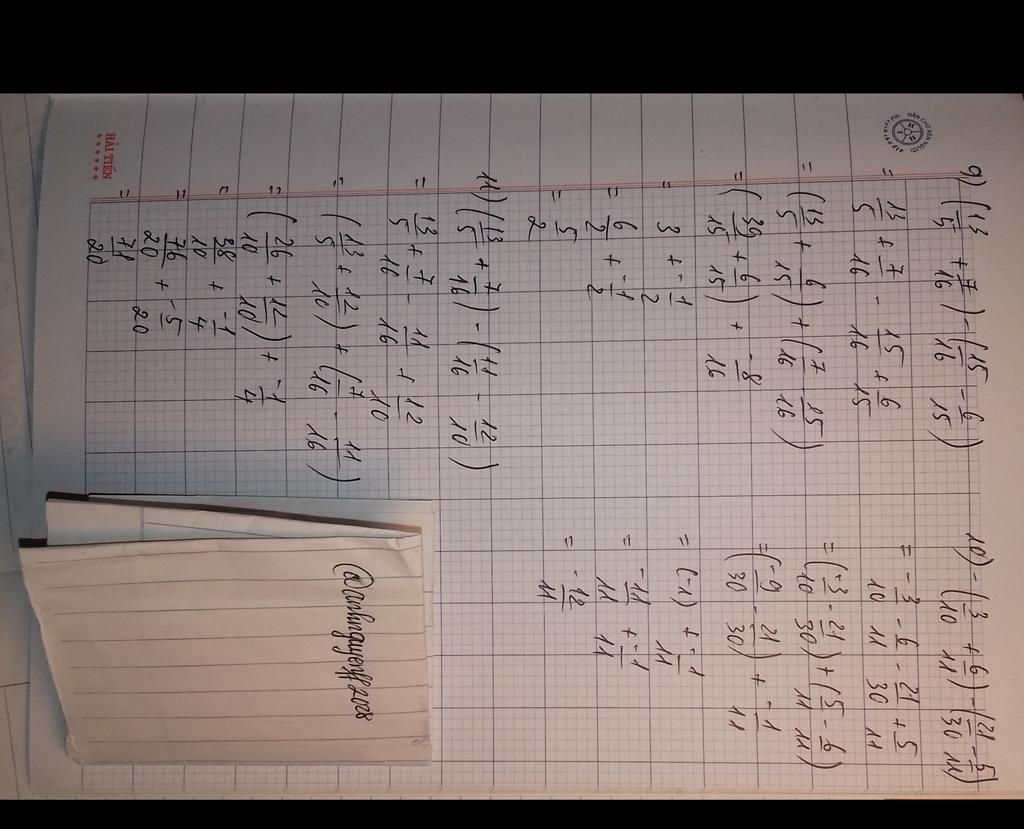 9) (13/5 + 7/16) - (15/16 - 6/15)
= 13/5 + 7/16 - 15/16 + 6/15
= (13/5 + 6/15) + (7/16 - 15/16)
= (39/15 + 6/15) + -8/16
= 3 + -1/2
= 6/2 + -1/2
= 5/2
11) (13/5 + 7/16) - (11/16 - 12/10)
= 13/5 + 7/16 - 11/16 + 12/10
= (13/5 + 12/10) + (7/16 - 11/16)
= (26/10 + 12/10) + -1/4
= 38/10 + -1/4
= 76/20 + -5/20
= 71/20
10) -(3/10 + 6/11) - (21/30 - 5/11)
= -3/10 - 6/11 - 21/30 + 5/11
= (-3/10 - 21/30) + (5/11 - 6/11)
= (-9/30 - 21/30) + -1/11
= (-1) + -1/11
= -11/11 + -1/11
= -12/11
HẢI TIẾN